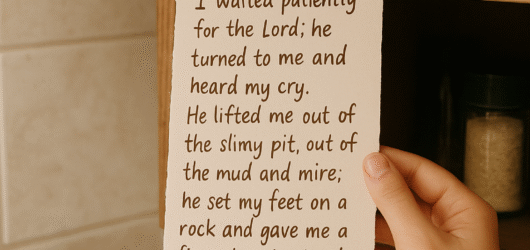 I waited patiently
for the Lord; he
turned to me and
heard my cry.
He lifted me out of
the slimy pit, out of
the mud and mire;
he set my feet on a
rock and gave me a